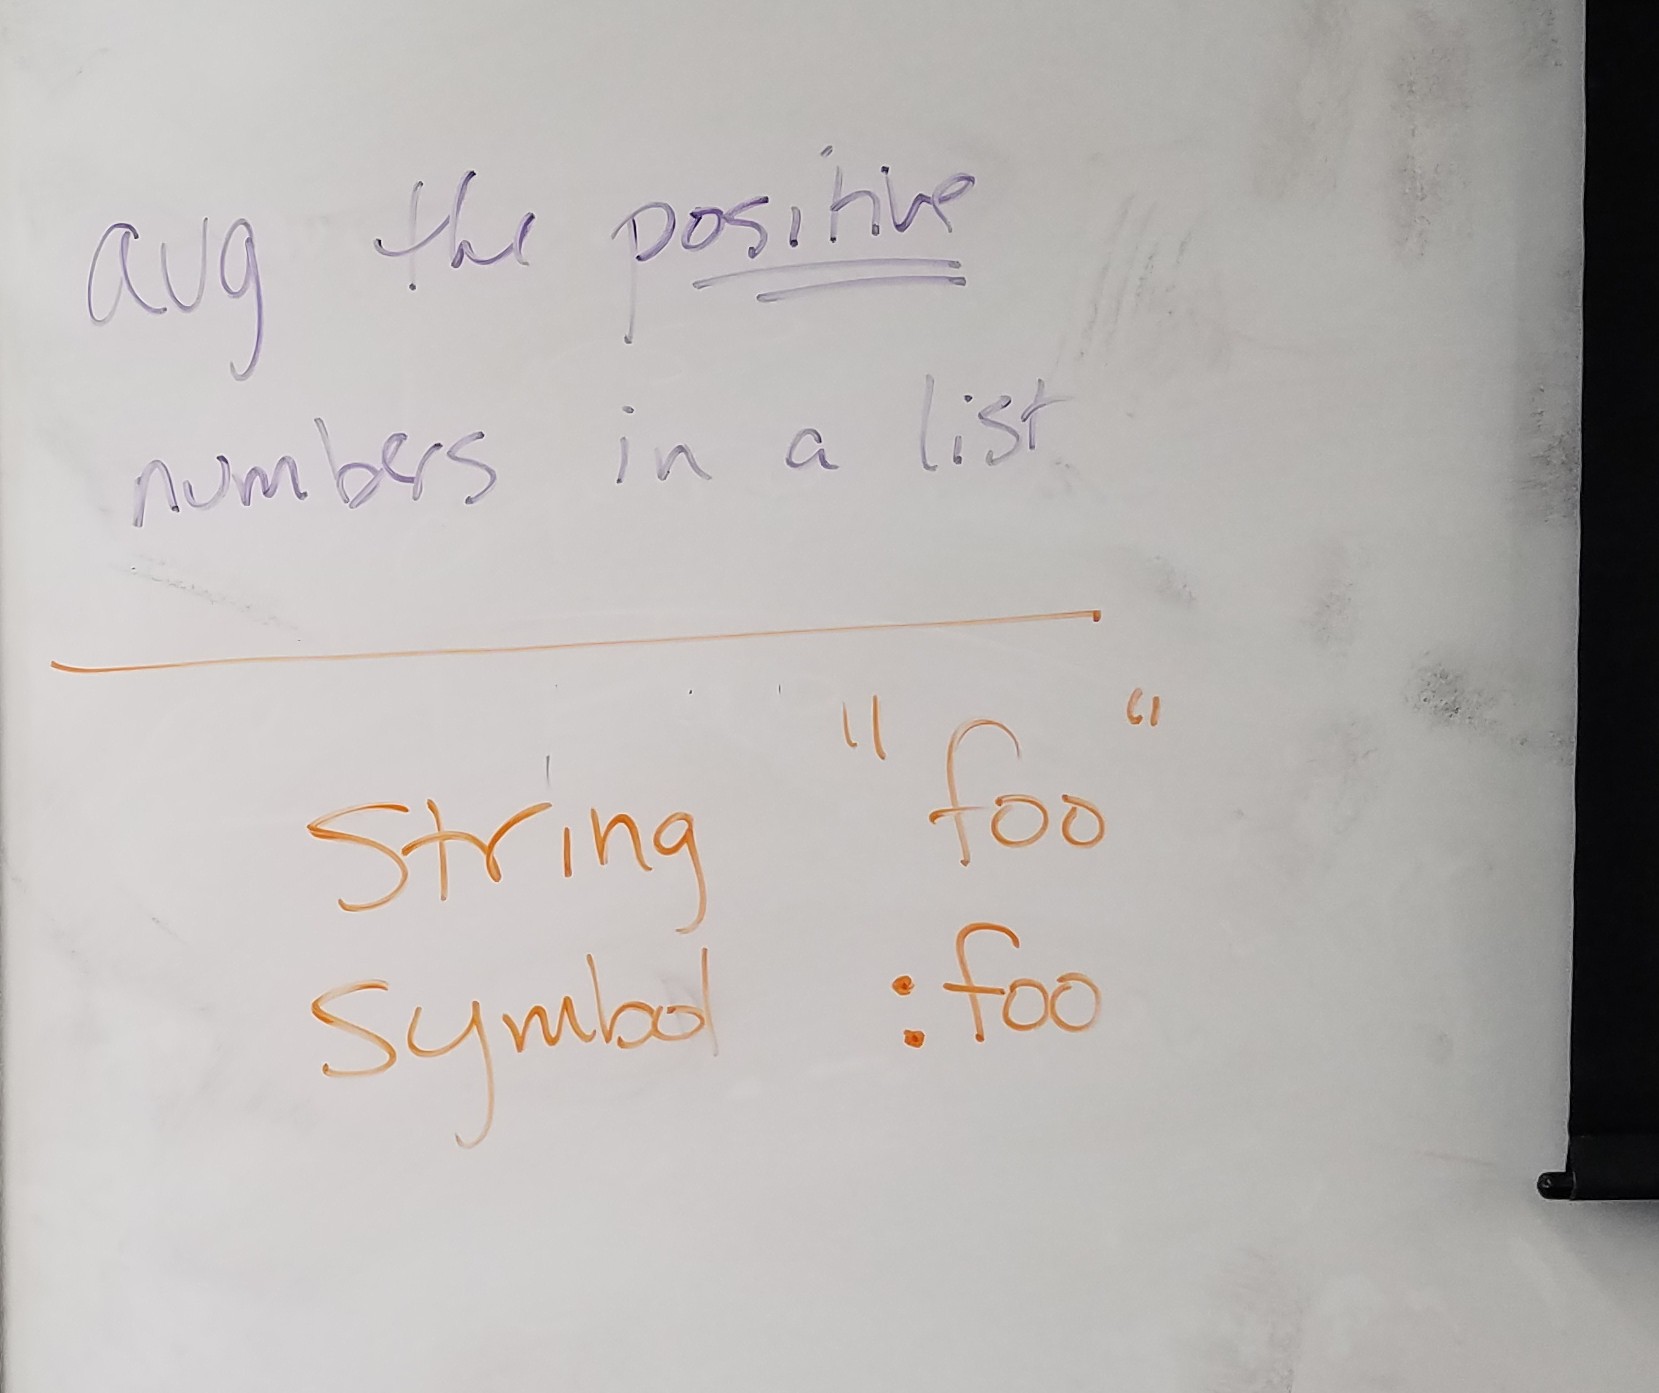 avg the positive
numbers in a list
String "foo"
Symbol :foo